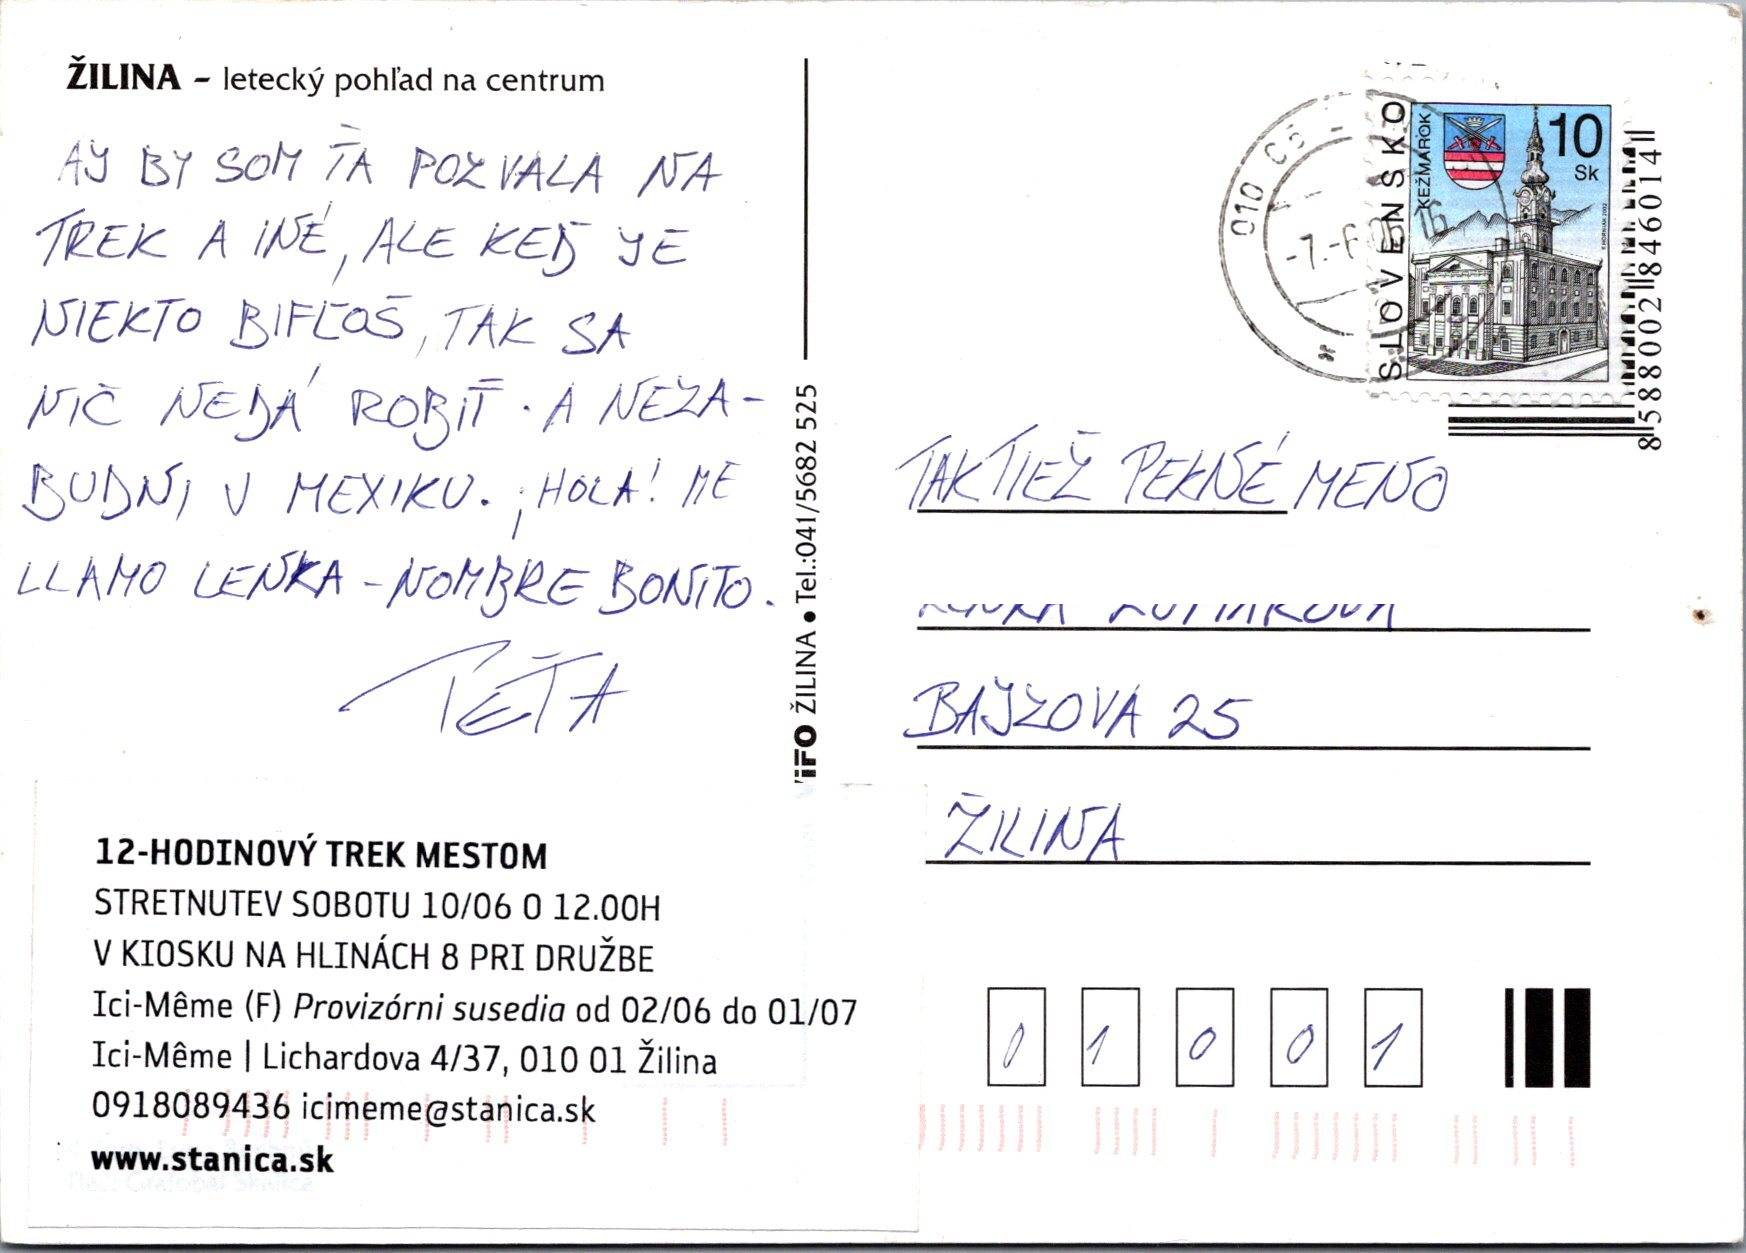 ŽILINA – letecký pohľad na centrum
AJ BY SOM ŤA POZVALA NA
TREK A INÉ, ALE KEĎ JE
NIEKTO BIFĽOŠ, TAK SA
NIČ NEDÁ ROBIŤ. A NEZA-
BUDNI V MEXIKU. ¡HOLA! ME
LLAMO LENKA – NOMBRE BONITO.
PEŤA
12-HODINOVÝ TREK MESTOM
STRETNUTEV SOBOTU 10/06 O 12.00H
V KIOSKU NA HLINÁCH 8 PRI DRUŽBE
Ici-Même (F) Provizórni susedia od 02/06 do 01/07
Ici-Même | Lichardova 4/37, 010 01 Žilina
0918089436 icimeme@stanica.sk
www.stanica.sk
ŽILINA ● Tel.:041/5682 525
010
-7.-6
SLOVENSKO
KEŽMAROK
10
Sk
8588002846014
TAKTIEŽ PEKNÉ MENO
BAJZOVA 25
ŽILINA
0 1 0 0 1